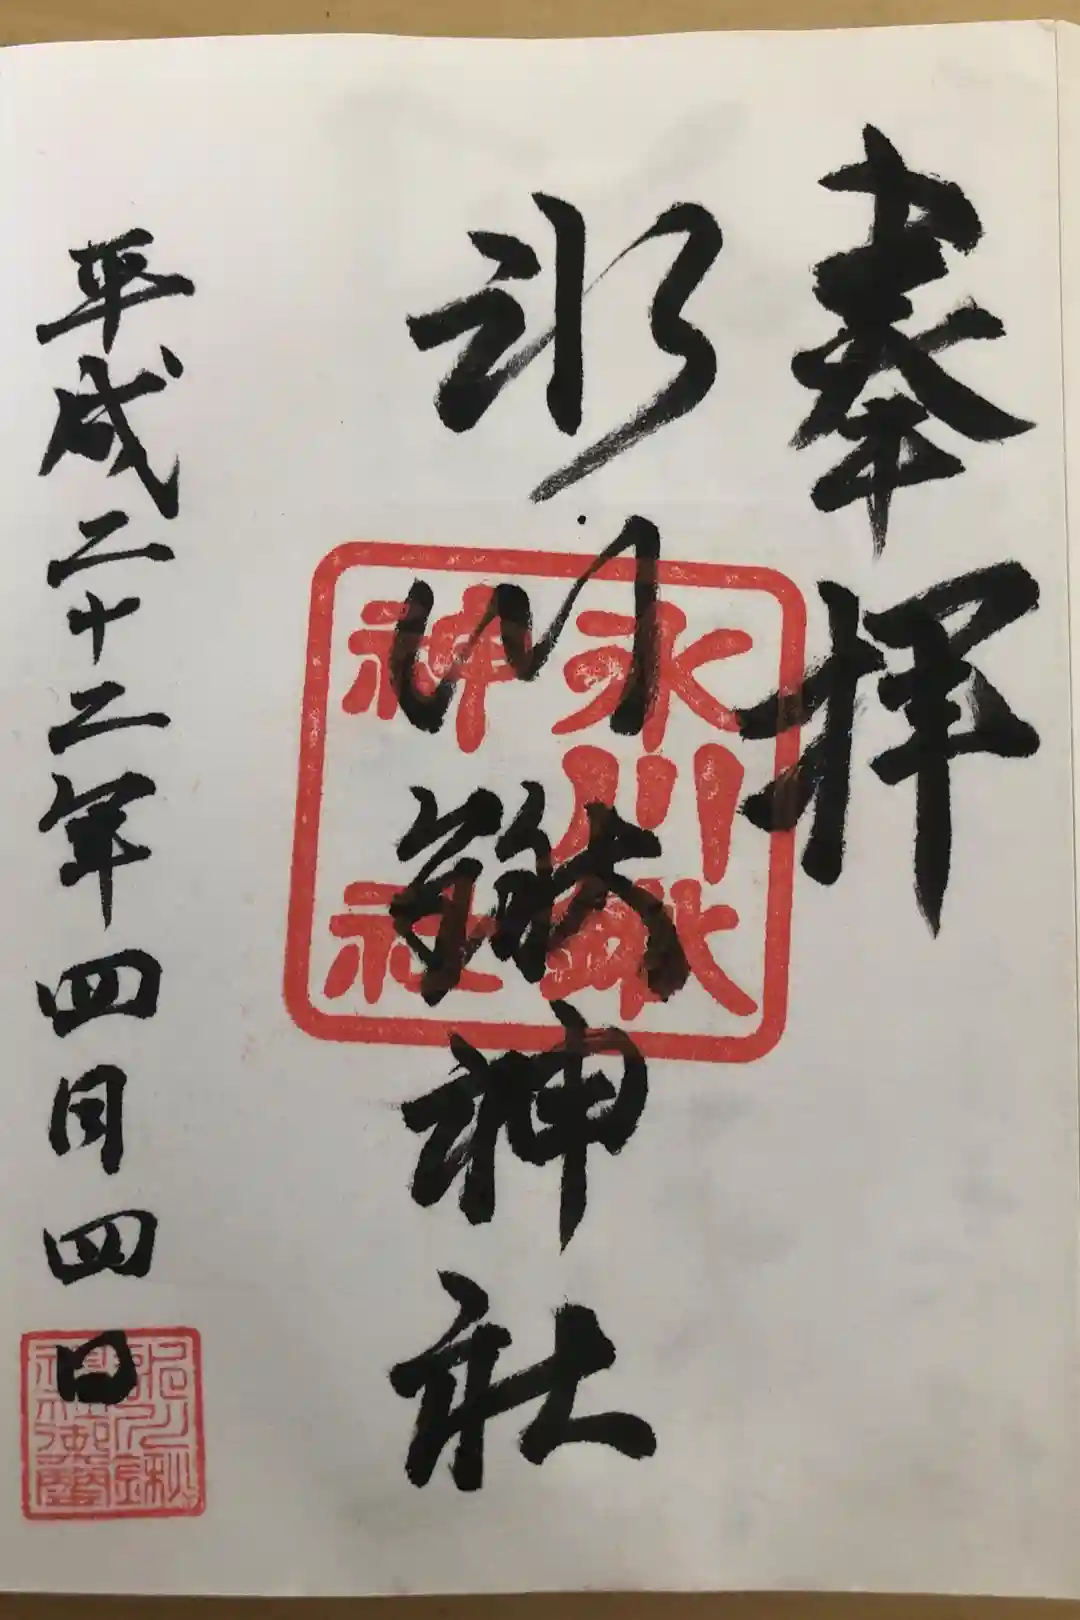 奉拝
氷川鍬神社
氷川鍬
神社
平成二十二年四月四日